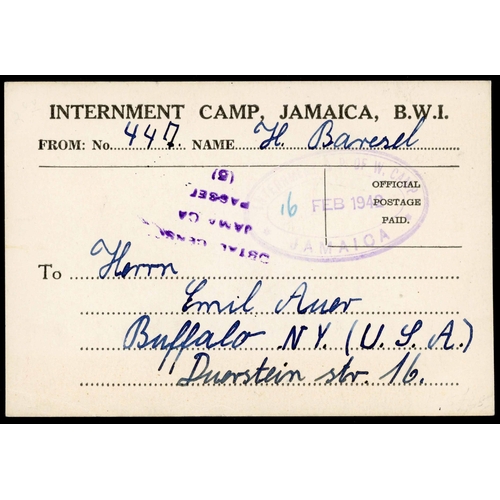 INTERNMENT CAMP, JAMAICA, B.W.I.
FROM: No. 447. NAME H. Baresel
OFFICIAL
POSTAGE
PAID.
OF W. CAMP
16 FEB 194
JAMAICA
POSTAL CENSOR
JAMAICA
PASSED
(5)
To Herrn
Emil Auer
Buffalo NY. (U.S.A.)
Duerstein str. 16.